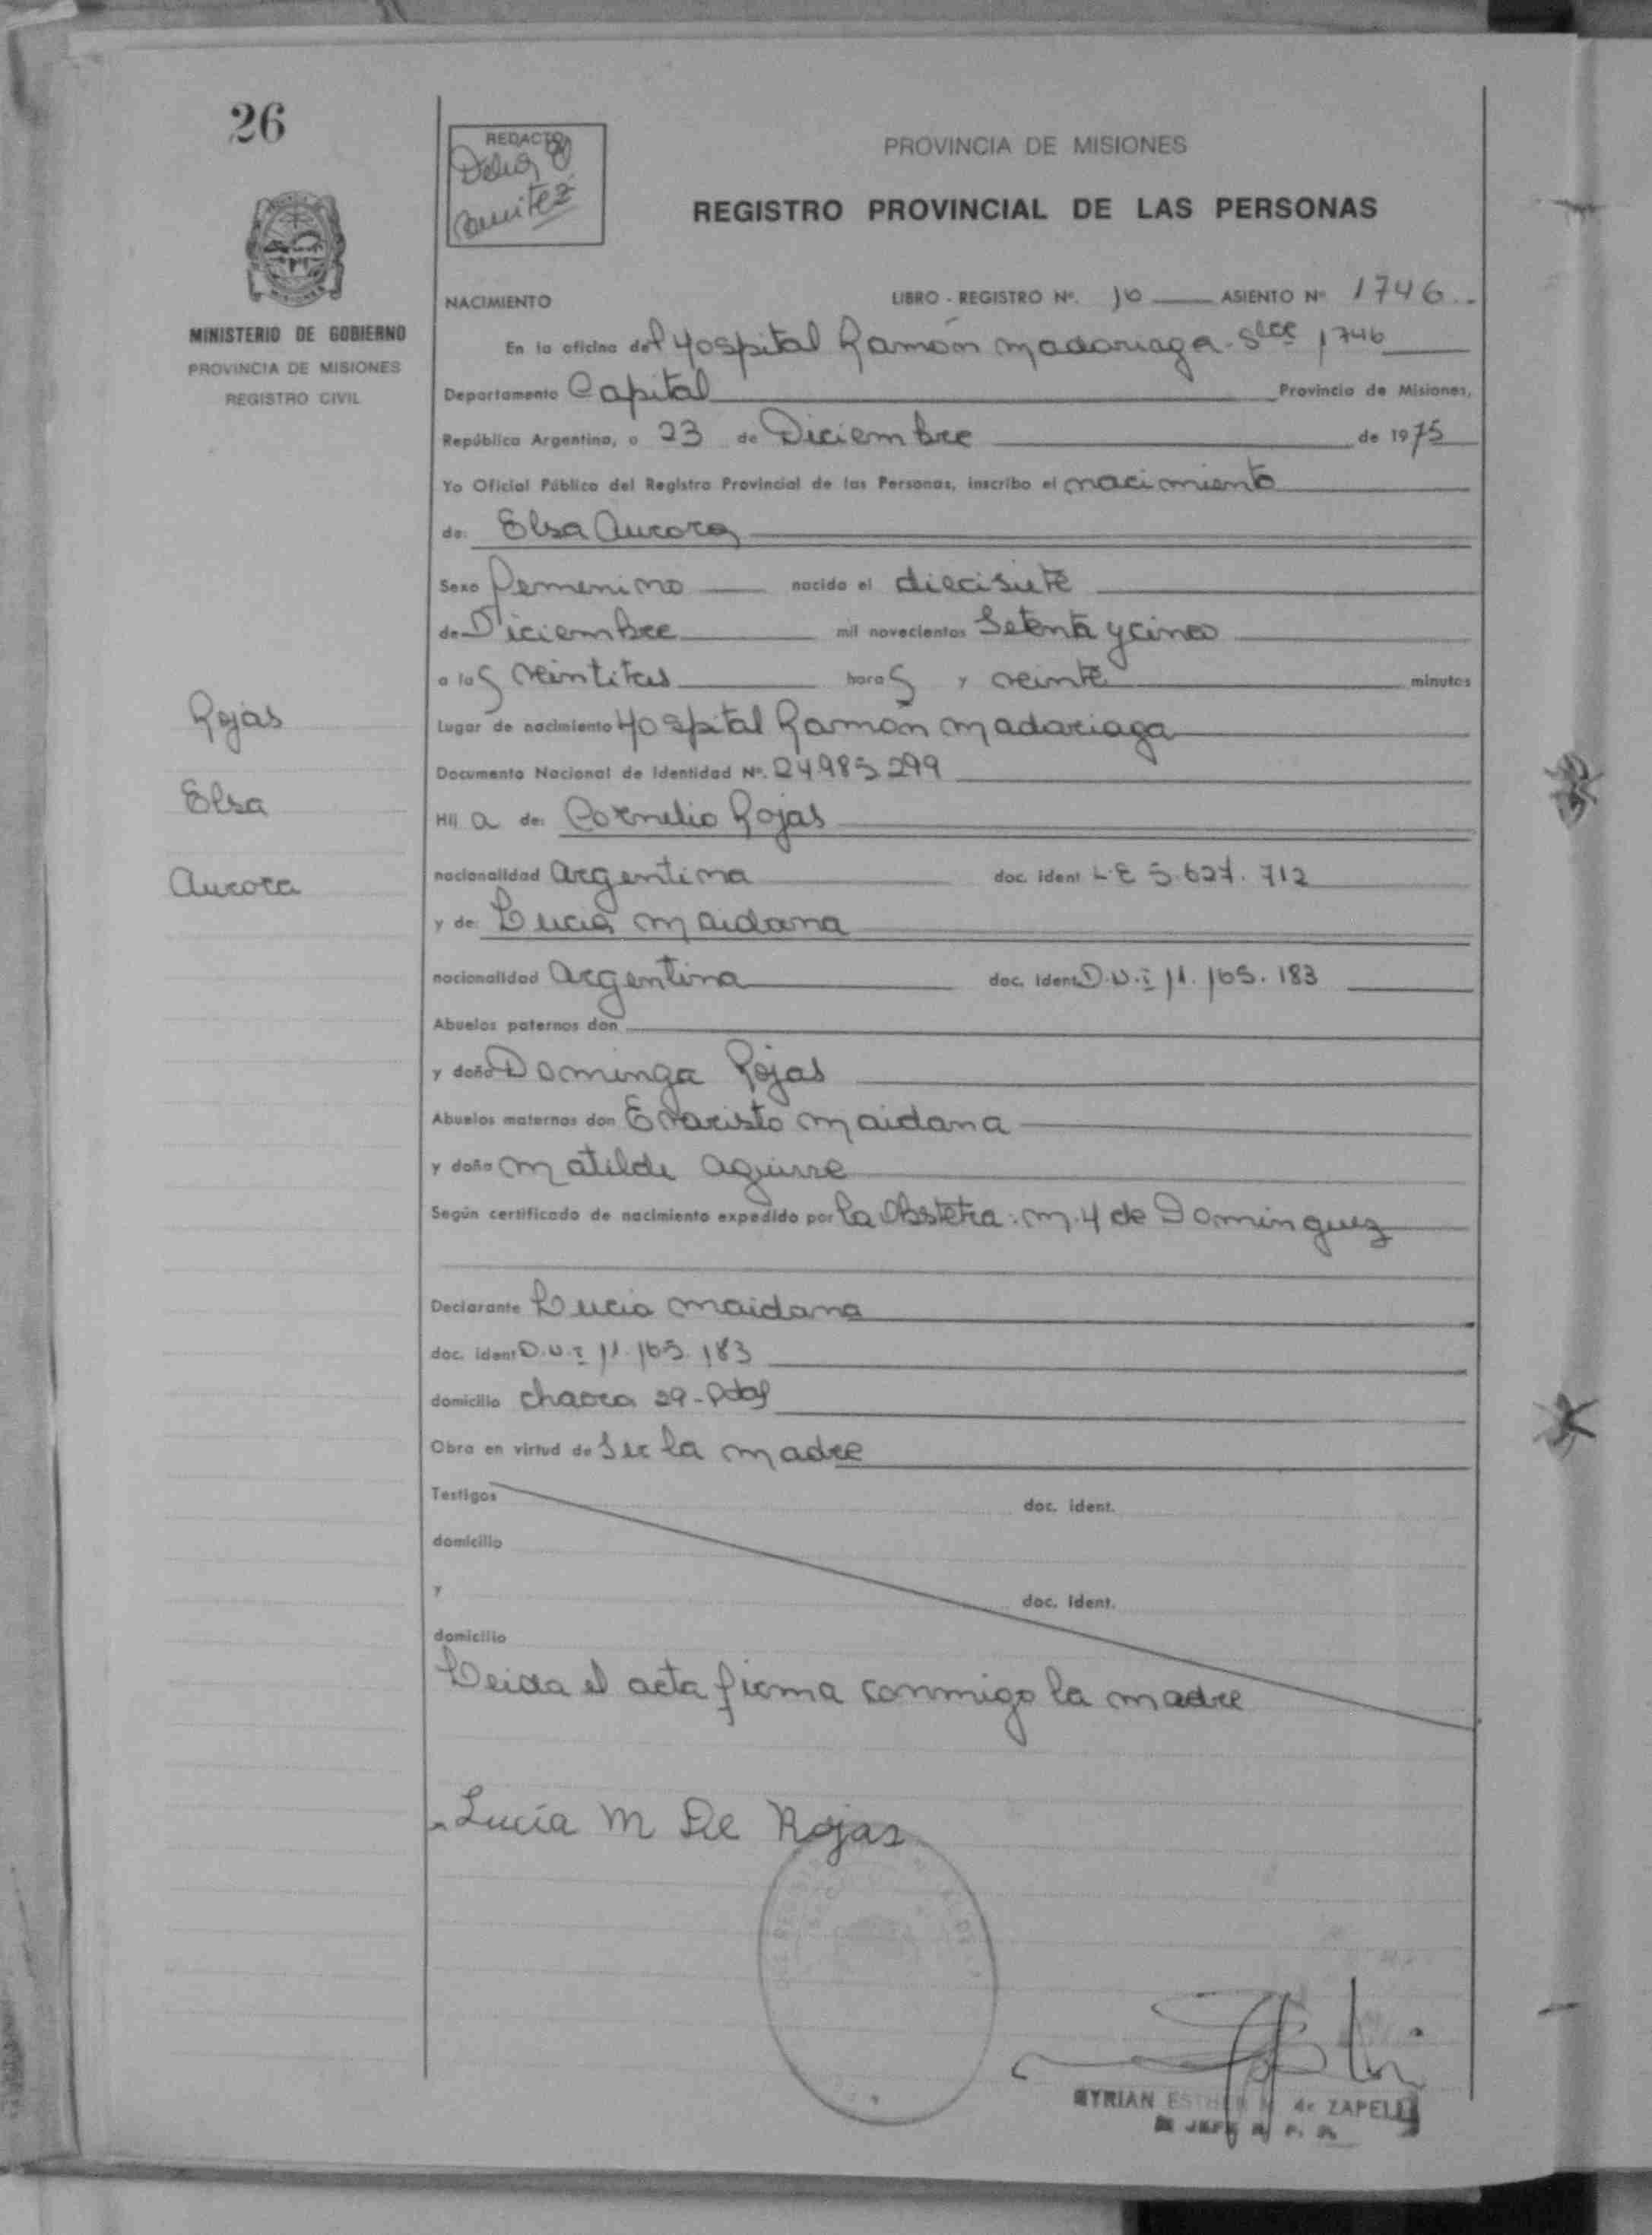 26
REDACTO
Delia
PROVINCIA DE MISIONES
REGISTRO PROVINCIAL DE LAS PERSONAS
MINISTERIO DE GOBIERNO
PROVINCIA DE MISIONES
REGISTRO CIVIL
NACIMIENTO LIBRO - REGISTRO Nº. 10 ASIENTO Nº 1746
En la oficina del Hospital Ramón Madariaga - 1746
Departamento Capital Provincia de Misiones,
República Argentina, a 23 de Diciembre de 1975
Yo Oficial Público del Registro Provincial de las Personas, inscribo el nacimiento
de: Elsa Aurora
Sexo femenino nacida el diecisiete
de Diciembre mil novecientos Setenta y cinco
a las veintitres horas y veinte minutos
Rojas
Elsa
Aurora
Lugar de nacimiento Hospital Ramón Madariaga
Documento Nacional de Identidad Nº. 24.985.299
Hij a de: Cornelio Rojas
nacionalidad Argentina doc. ident L E 5.627.712
y de: Lucia Maidana
nacionalidad Argentina doc. ident D.N.I 11.165.183
Abuelos paternos don
y doña Dominga Rojas
Abuelos maternos don Evaristo Maidana
y doña Matilde Aguirre
Según certificado de nacimiento expedido por la Obstetra: M. H de Dominguez
Declarante Lucia Maidana
doc. ident D.N.I 11.165.183
domicilio chacra 29 - Pdas
Obra en virtud de Ser la madre
Testigos doc. ident.
domicilio
y doc. ident.
domicilio
Leida el acta firma conmigo la madre
Lucía M De Rojas
MYRIAN ESTHER de ZAPELLI
JEFE R. P. P.